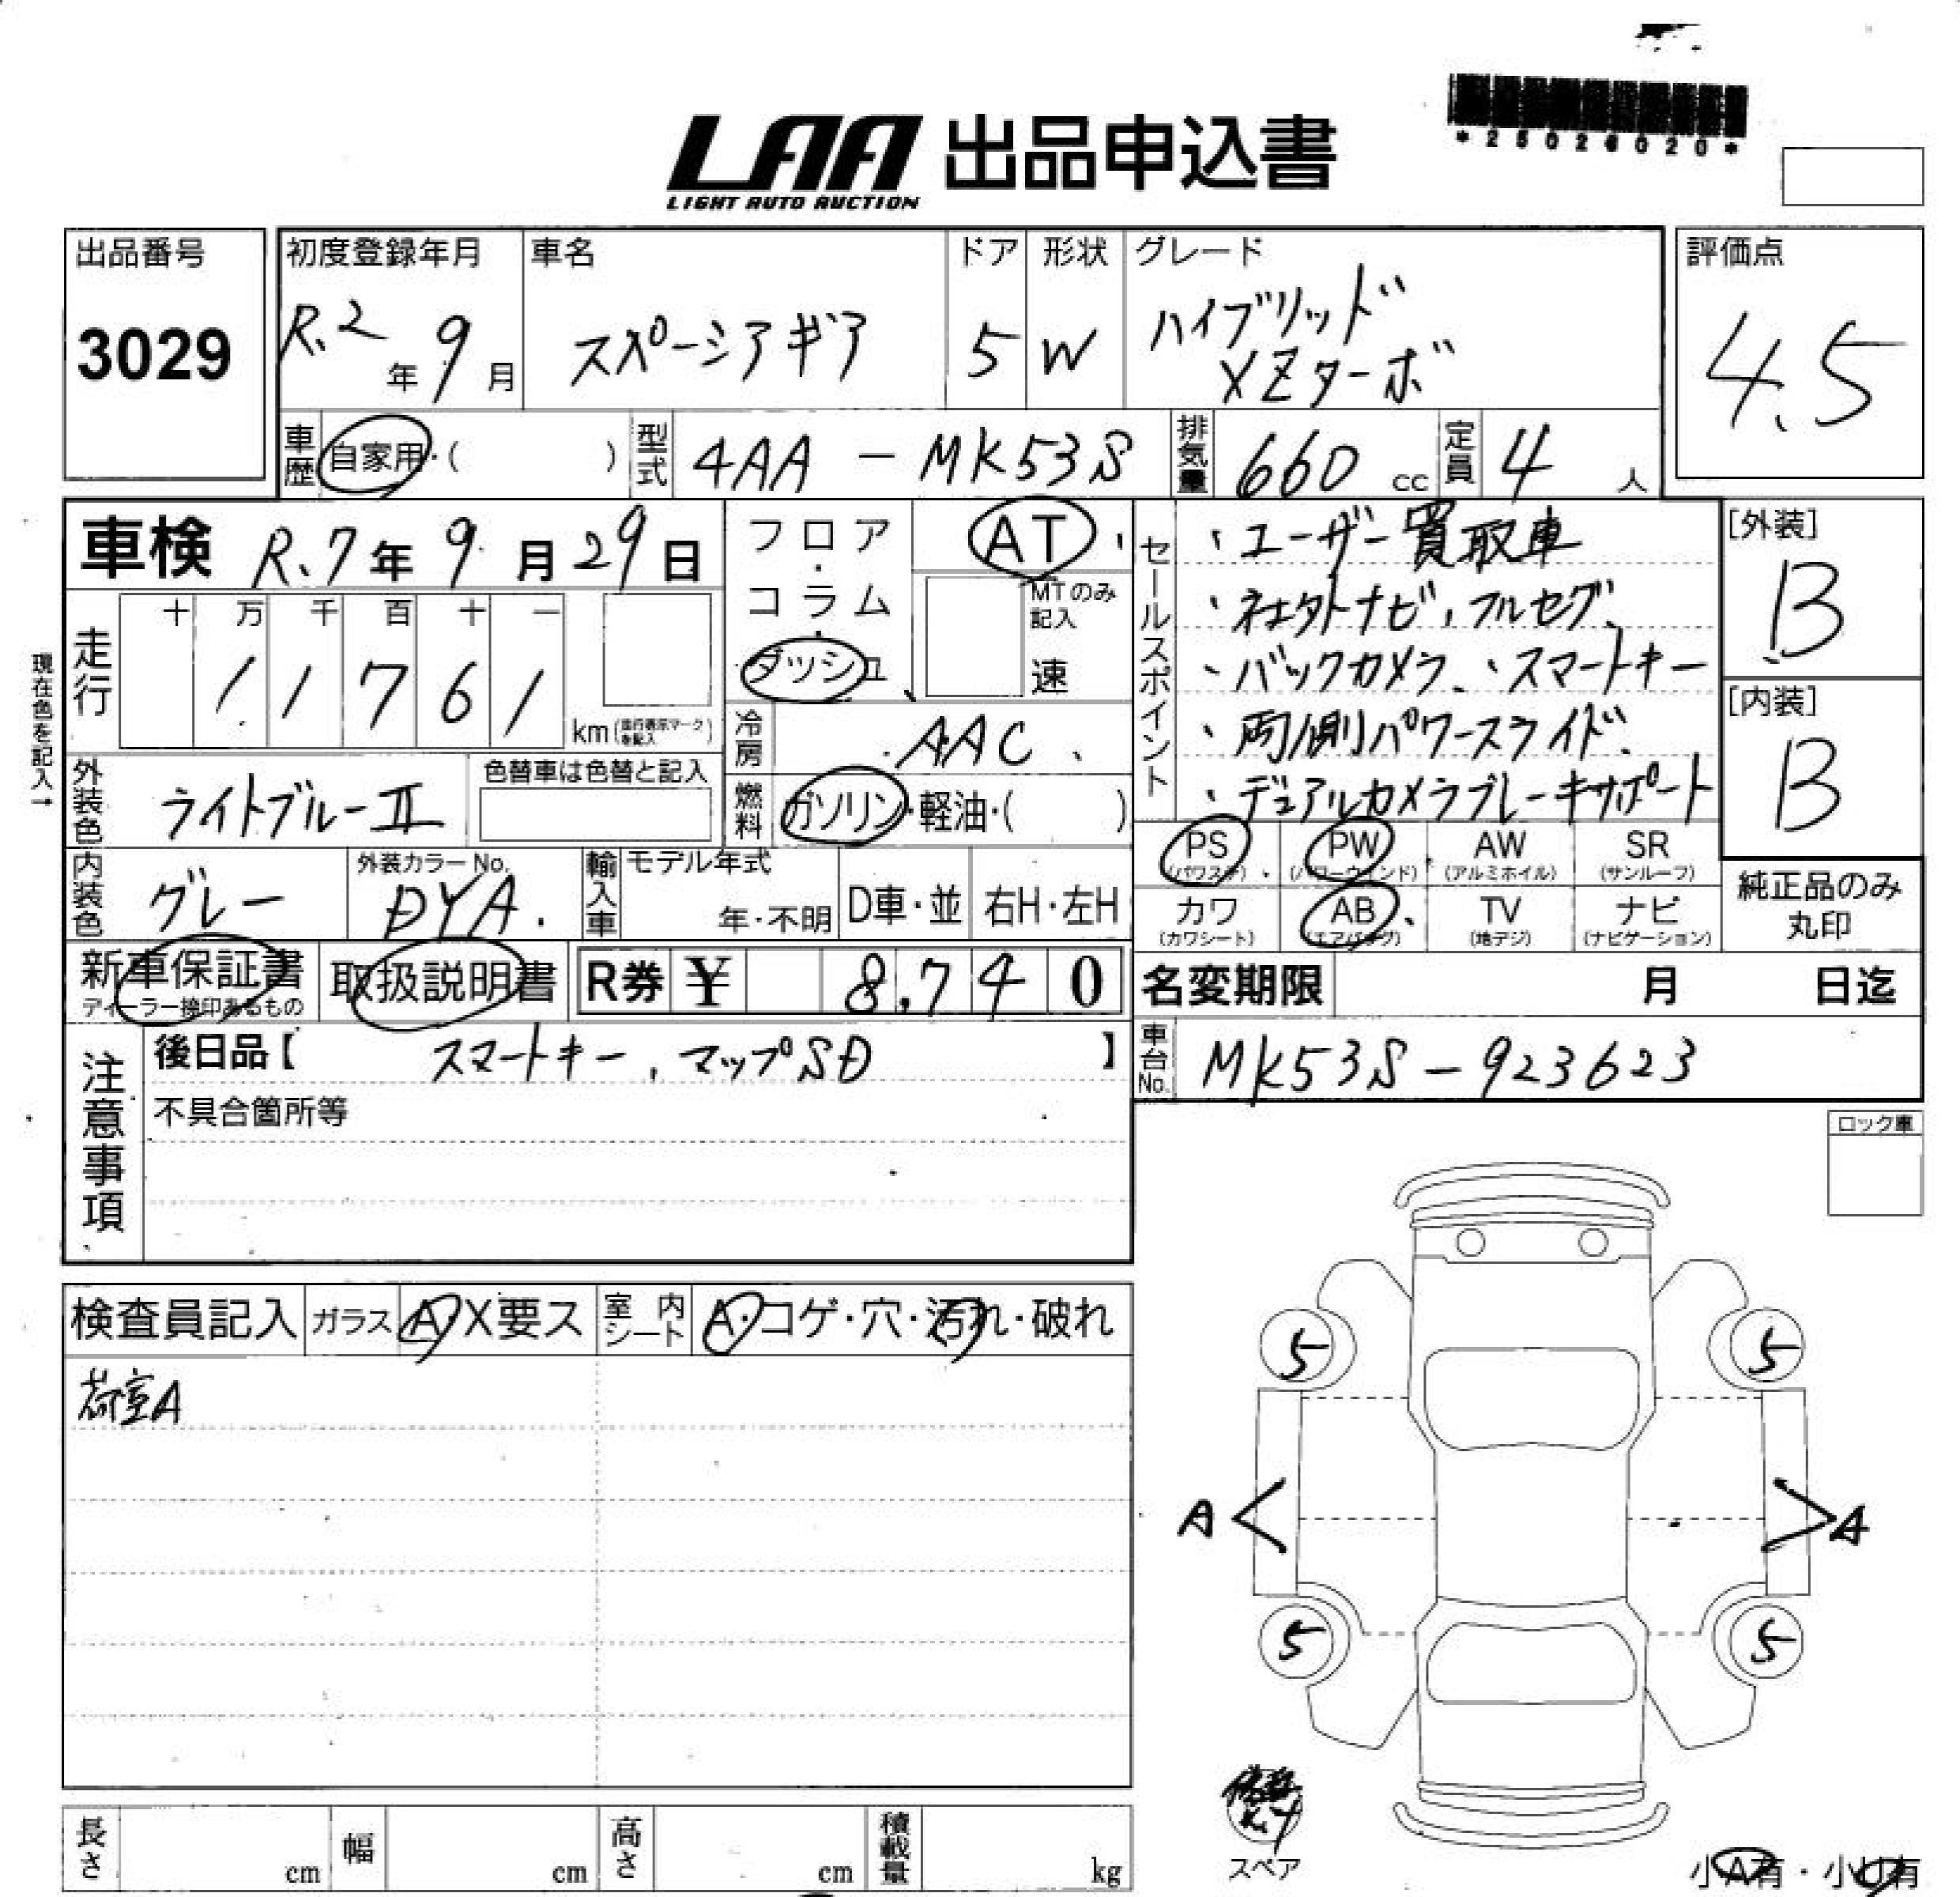 LAA 出品申込書
LIGHT AUTO AUCTION
*25026020*
出品番号
3029
初度登録年月
R.2年9月
車名
スペーシアギア
ドア
5
形状
W
グレード
ハイブリッド
XZターボ
評価点
4.5
車歴 自家用・( )
型式 4AA-MK53S
排気量 660 cc
定員 4 人
車検 R.7年9月29日
走行
十 万 千 百 十 一
1 1 7 6 1 km
(走行表示マークを記入)
現在色を記入→
外装色 ライトブルーII
色替車は色替と記入
内装色 グレー
外装カラーNo.
DYA.
輸入車
モデル年式
年・不明
D車・並
右H・左H
フロア・コラム・ダッシュ
AT
MTのみ記入
速
冷房 AAC
燃料 ガソリン・軽油・( )
セールスポイント
、ユーザー買取車
、社外ナビ、フルセグ、
、バックカメラ、、スマートキー
、両側パワースライド、
、デュアルカメラブレーキサポート
[外装]
B
[内装]
B
PS (パワステ)
PW (パワーウインド)
AW (アルミホイル)
SR (サンルーフ)
カワ (カワシート)
AB (エアバッグ)
TV (地デジ)
ナビ (ナビゲーション)
純正品のみ
丸印
新車保証書
ディーラー捺印あるもの
取扱説明書
R券 ¥ 8,740
名変期限 月 日迄
注意事項
後日品【 スマートキー、マップSD 】
不具合箇所等
車台No. MK53S-923623
ロック車
検査員記入
ガラス A・X要ス
室内シート A・コゲ・穴・汚れ・破れ
荷室A
5 5
A A
5 5
スペア
小A有・小U有
長さ cm
幅 cm
高さ cm
積載量 kg